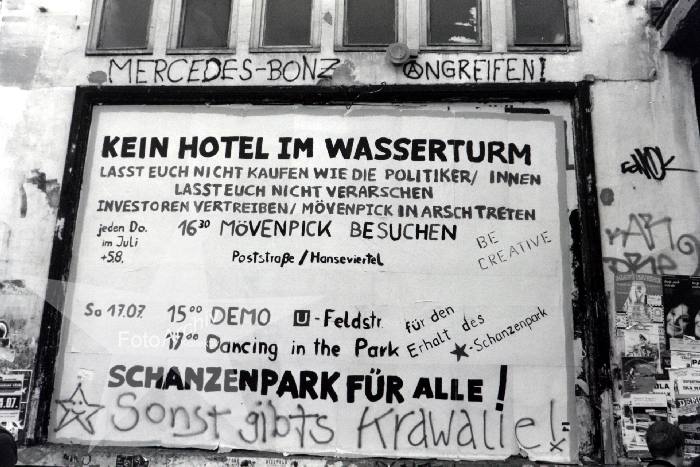 MERCEDES-BONZ ANGREIFEN!
KEIN HOTEL IM WASSERTURM
LASST EUCH NICHT KAUFEN WIE DIE POLITIKER/ INNEN
LASST EUCH NICHT VERARSCHEN
INVESTOREN VERTREIBEN/ MÖVENPICK IN ARSCH TRETEN
jeden Do.
im Juli
+5.8.
16³⁰ MÖVENPICK BESUCHEN
Poststraße/Hanseviertel
BE
CREATIVE
Sa 17.07. 15⁰⁰ DEMO U-Feldstr.
17⁰⁰ Dancing in the Park
für den
Erhalt des
★-Schanzenpark
SCHANZENPARK FÜR ALLE!
Sonst gibts Krawalle!